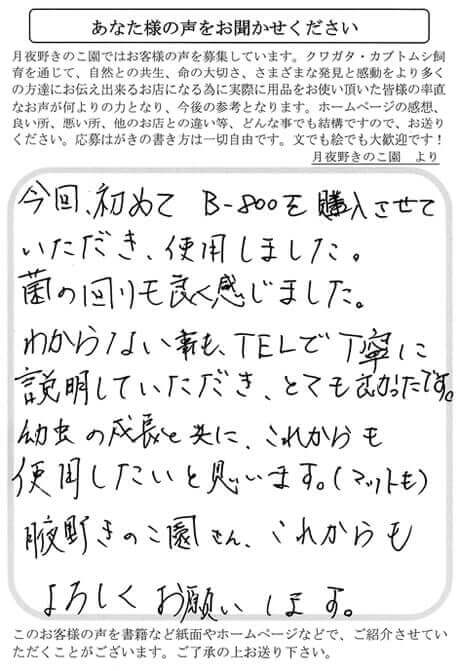 あなた様の声をお聞かせください
月夜野きのこ園ではお客様の声を募集しています。クワガタ・カブトムシ飼
育を通じて、自然との共生、命の大切さ、さまざまな発見と感動をより多く
の方達にお伝え出来るお店になる為に実際に用品をお使い頂いた皆様の率直
なお声が何よりの力となり、今後の参考となります。ホームページの感想、
良い所、悪い所、他のお店との違い等、どんな事でも結構ですので、お送り
ください。応募はがきの書き方は一切自由です。文でも絵でも大歓迎です！
月夜野きのこ園　より
今回、初めて B-800を購入させて
いただき、使用しました。
菌の回りも良く感じました。
わからない事も、TELで丁寧に
説明していただき、とても良かったです。
幼虫の成長と共に、これからも
使用したいと思います。(マットも)
腋野きのこ園さん、これからも
よろしくお願いします。
このお客様の声を書籍など紙面やホームページなどで、ご紹介させてい
ただくことがございます。ご了承の上お送り下さい。